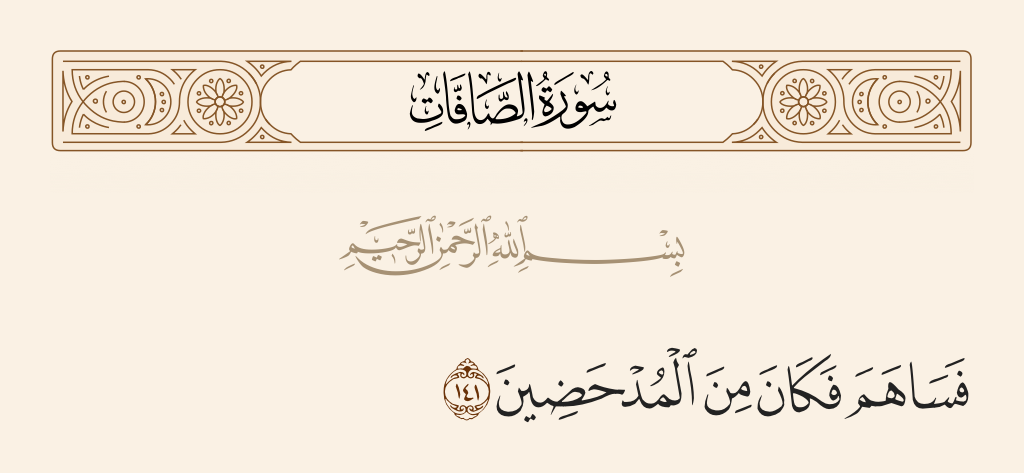 سُورَةُ الصَّافَّاتِ
بِسْمِ ٱللَّهِ ٱلرَّحْمَٰنِ ٱلرَّحِيمِ
فَسَاهَمَ فَكَانَ مِنَ ٱلْمُدْحَضِينَ ١٤١